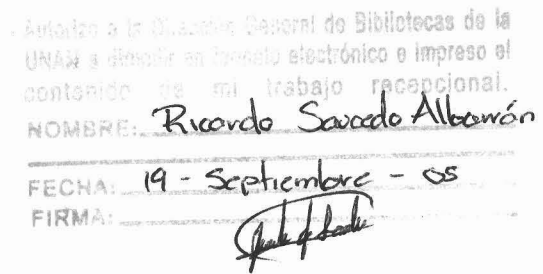 Autorizo a la Dirección General de Bibliotecas de la
UNAM a difundir en formato electrónico e impreso el
contenido de mi trabajo recepcional.
NOMBRE: Ricardo Saucedo Albarrán
FECHA: 19 - Septiembre - 05
FIRMA: